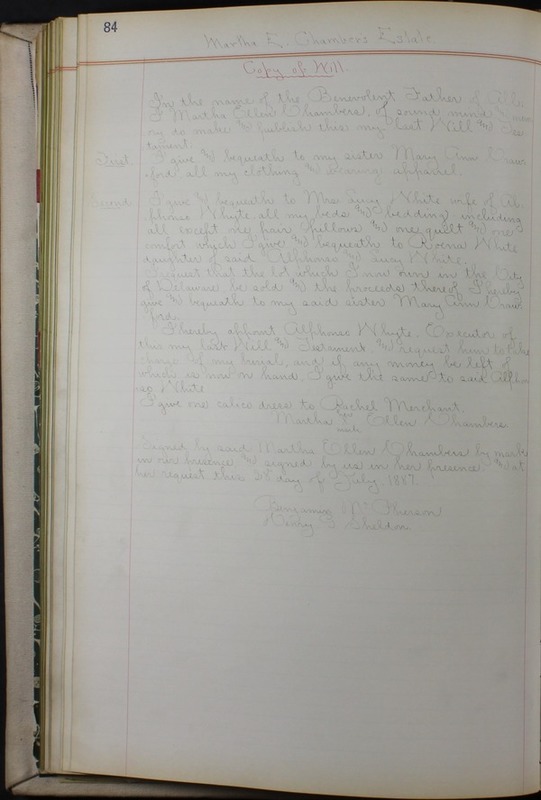 84
Martha E. Chambers Estate
Copy of Will
In the name of the Benevolent Father of All.
I Martha Ellen Chambers, of sound mind & memo
ry to make & publish this my last Will & Tes
tament.
First. I give & bequeath to my sister Mary Ann Craw
ford all my clothing & wearing apparel.
Second. I give & bequeath to Mrs. Lucy White wife of Al
phonso Whyte all my beds & bedding including
all except one pair pillows & one quilt & one
comfort which I give & bequeath to Rvena White
daughter of said Alphonso & Lucy White.
I request that the lot which I now own in the City
of Delaware be sold & the proceeds thereof I hereby
give & bequeath to my said sister Mary Ann Craw
ford.
I hereby appoint Alphonso Whyte, Executor of
this my last Will & Testament & request him to take
charge of my burial, and if any money be left of
which is now on hand I give the same to said Alphon
so White
I give one calico dress to Rachel Merchant.
Martha her mark Ellen Chambers
Signed by said Martha Ellen Chambers by mark
in our presence & signed by us in her presence & at
her request this 28 day of July, 1887.
Benjamin McPherson
Henry J. Sheldon.